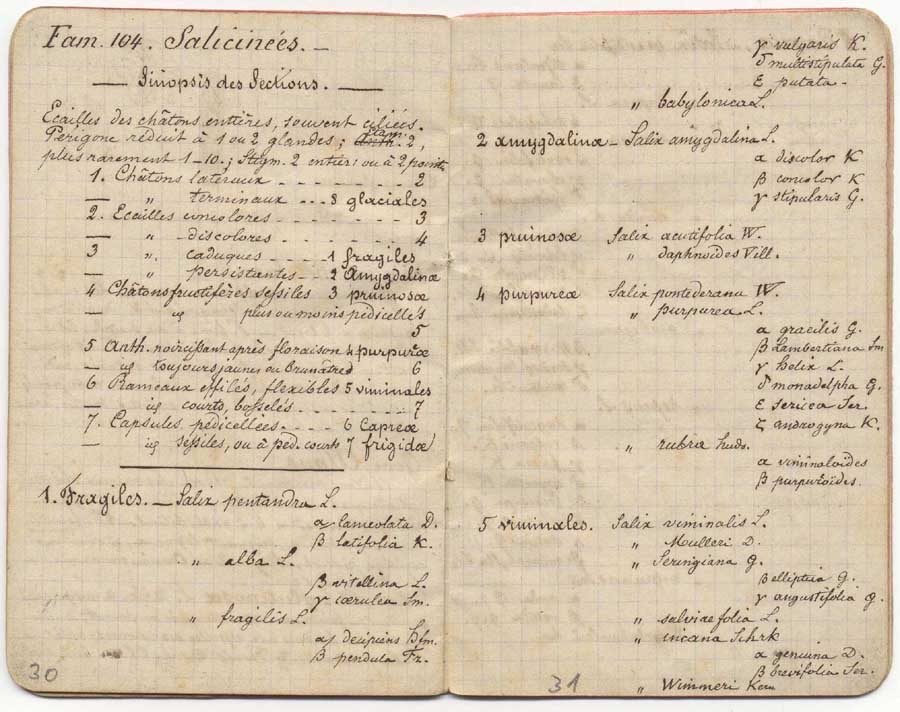 Fam. 104. Salicinées. —
— Sinopsis des Sections. —
Ecailles des châtons entières, souvent ciliées.
Stam.
Périgone réduit à 1 ou 2 glandes; Anth. 2,
plus rarement 1-10.; Stygm. 2 entiers ou à 2 points
1. Châtons latéraux - - - - - - 2
— " terminaux - - - 8 glaciales
2. Ecailles concolores - - - - - - 3
— " discolores - - - - - - 4
3 " caduques - - - 1 fragiles
— " persistantes - - 2 Amygdalinæ
4 Châtons fructifères sessiles 3 pruinosæ
— id plus ou moins pédicellés
5
5 Anth. noircissant après floraison 4 purpuræ
— id toujours jaunes ou brunâtres 6
6 Rameaux effilés, flexibles 5 viminales
— id courts, bosselés - - - - - 7
7. Capsules pédicellées - - - 6 Capreæ
— id sessiles, ou à péd. courts 7 frigidæ
1. Fragiles. — Salix pentandra L.
α lanceolata D.
β latifolia K.
" alba L.
β vitellina L.
γ cœrulea Sm.
" fragilis L.
α decipiens Hfm.
β pendula Fr.
30
γ vulgaris K.
δ multistipulata G.
ε putata -
" babylonica L.
2 amygdalinæ - Salix amygdalina L.
α discolor K
β concolor K
γ stipularis G.
3 pruinosæ Salix acutifolia W.
" daphnoides Vill.
4 purpureæ Salix pontederana W.
" purpurea L.
α gracilis G.
β Lambertiana Sm
γ helix L.
δ monadelpha G.
ε sericea Ser.
ζ androgyna K.
" rubra huds.
α viminaloïdes
β purpuroïdes.
5 viminales. Salix viminalis L.
" Mulleri D.
" Seringiana G.
β elliptica G.
γ angustifolia G.
" salviæfolia L.
" incana Schrk
α genuina D.
β brevifolia Ser.
" Wimmeri Kern
31